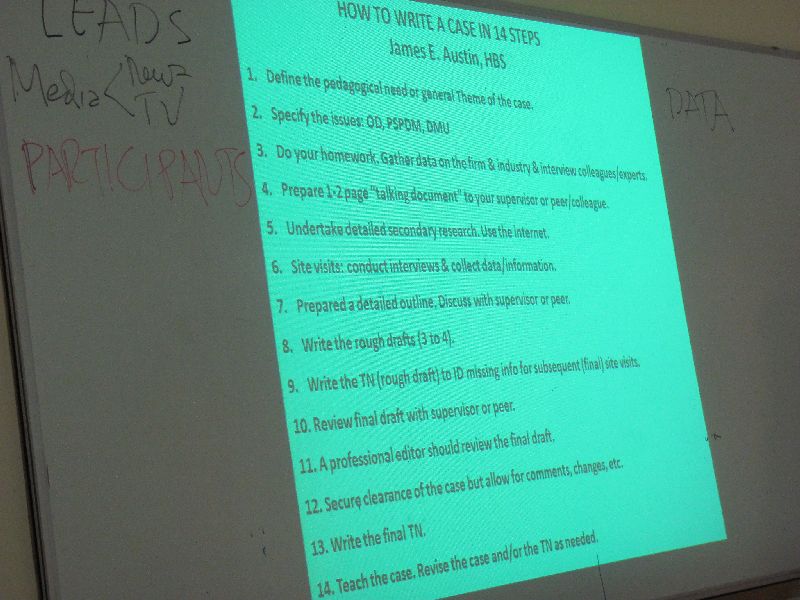 LEADS
Media < News
TV
PARTICIPANTS
HOW TO WRITE A CASE IN 14 STEPS
James E. Austin, HBS
1. Define the pedagogical need or general Theme of the case.
2. Specify the issues: OD, PSPDM, DMU
3. Do your homework. Gather data on the firm & industry & interview colleagues/experts.
4. Prepare 1-2 page "talking document" to your supervisor or peer/colleague.
5. Undertake detailed secondary research. Use the internet.
6. Site visits: conduct interviews & collect data/information.
7. Prepared a detailed outline. Discuss with supervisor or peer.
8. Write the rough drafts (3 to 4).
9. Write the TN (rough draft) to ID missing info for subsequent (final) site visits.
10. Review final draft with supervisor or peer.
11. A professional editor should review the final draft.
12. Secure clearance of the case but allow for comments, changes, etc.
13. Write the final TN.
14. Teach the case. Revise the case and/or the TN as needed.
DATA